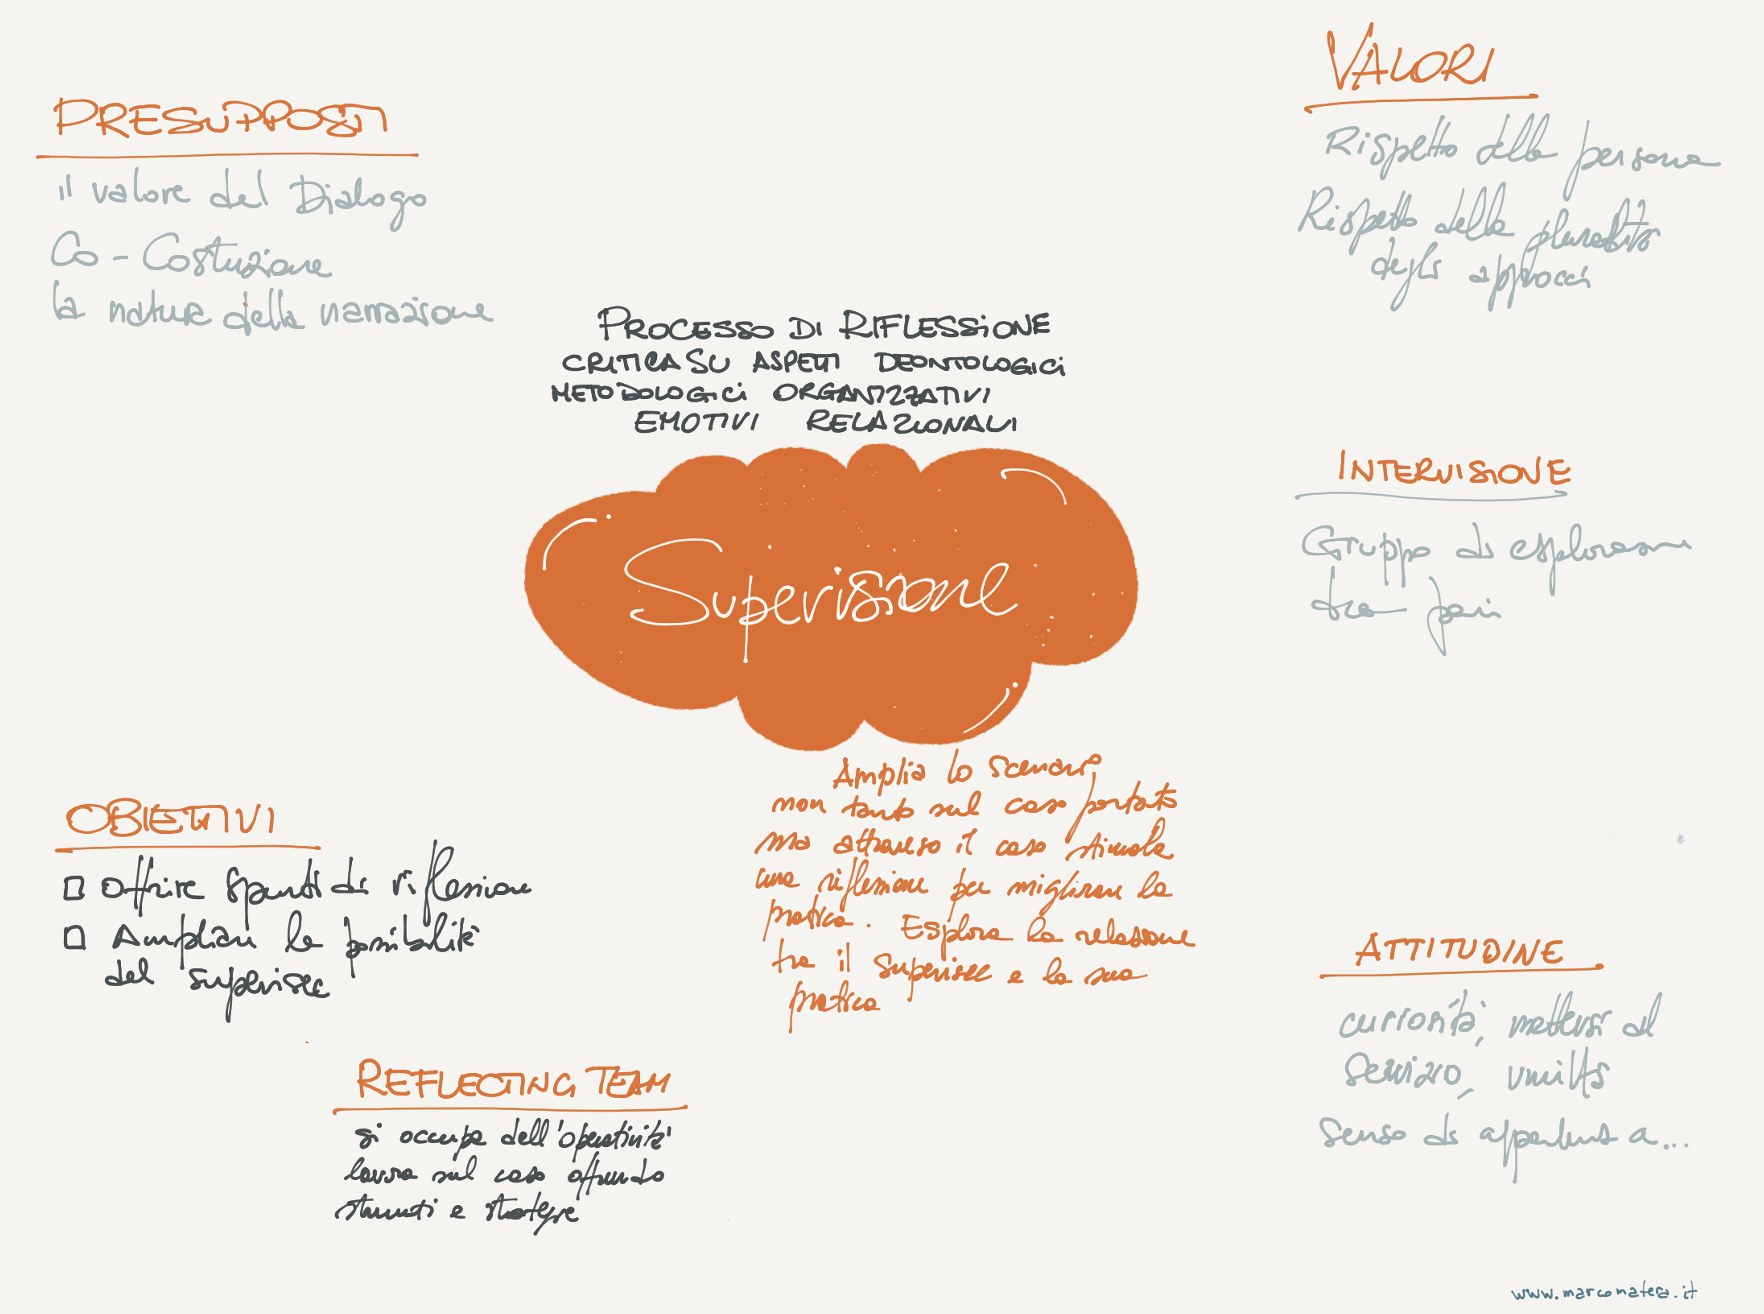 PRESUPPOSTI
il valore del Dialogo
Co-Costuzione
la natura della narrazione
PROCESSO DI RIFLESSIONE
CRITICA SU ASPETTI DEONTOLOGICI
METODOLOGICI ORGANIZZATIVI
EMOTIVI RELAZIONALI
Supervisione
Amplia lo scenario
non tanto sul caso portato
ma attraverso il caso stimola
una riflessione per migliorare la
pratica. Esplora la relazione
tra il supervisee e la sua
pratica
VALORI
Rispetto della persona
Rispetto della pluralità
degli approcci
INTERVISIONE
Gruppo di esplorazione
tra pari
ATTITUDINE
curiosità, mettersi al
servizio, umiltà
senso di appartenenza a...
OBIETTIVI
offrire spunti di riflessione
Ampliare le possibilità
del supervisee
REFLECTING TEAM
si occupa dell'operatività
lavora sul caso offrendo
strumenti e strategie
www.marcomatera.it